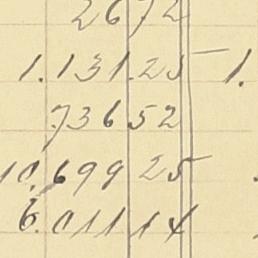 2672
1.131.25 1.
736 52
10.699 25
6.011 14